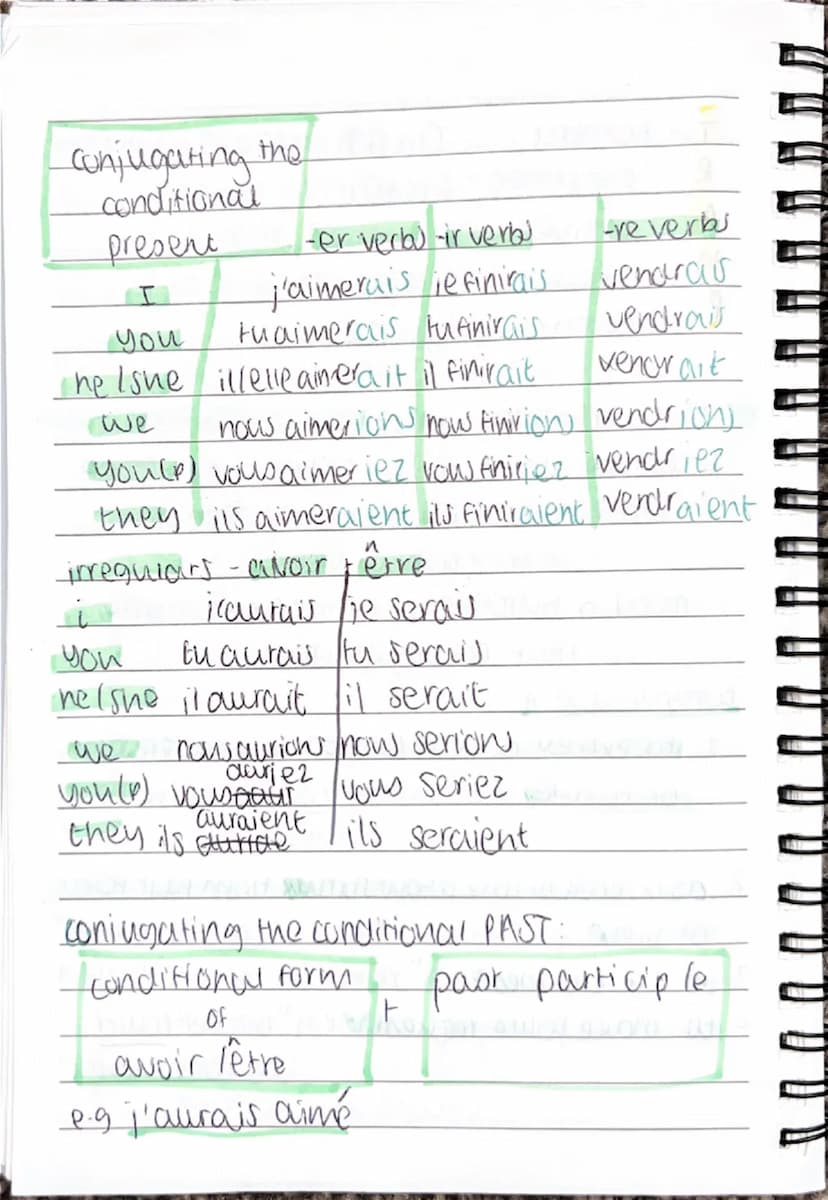 conjugating the
conditional
present -er verbs -ir verbs -re verbs
I j'aimerais je finirais vendrais
you tu aimerais tu finirais vendrais
he/she il/elle aimerait il finirait vendrait
we nous aimerions nous finirions vendrions
you(p) vous aimeriez vous finiriez vendriez
they ils aimeraient ils finiraient vendraient
irregulars - avoir + être
i j'aurais je serais
you tu aurais tu serais
he/she il aurait il serait
we nous aurions nous serions
you(p) vous auriez vous seriez
they ils auraient ils seraient
conjugating the conditional PAST:
conditional form + past participle
of
avoir/être
e.g j'aurais aimé